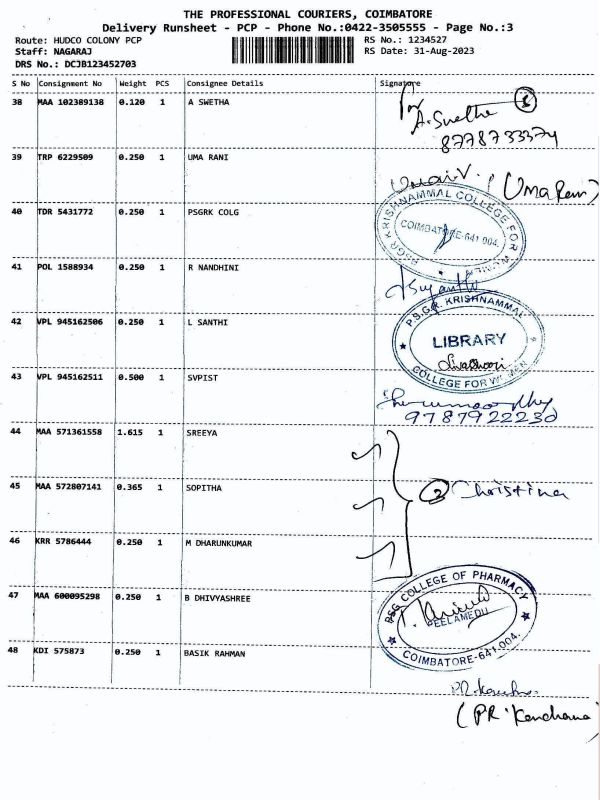 THE PROFESSIONAL COURIERS, COIMBATORE
Delivery Runsheet - PCP - Phone No.:0422-3505555 - Page No.:3
Route: HUDCO COLONY PCP RS No.: 1234527
Staff: NAGARAJ RS Date: 31-Aug-2023
DRS No.: DCJB123452703
S No Consignment No Weight PCS Consignee Details Signature
38 MAA 102389138 0.120 1 A SWETHA
A. Swetha
8778733374
39 TRP 6229509 0.250 1 UMA RANI
(Uma Rani)
40 TDR 5431772 0.250 1 PSGRK COLG
P.S.G.R KRISHNAMMAL COLLEGE FOR WOMEN
COIMBATORE-641 004.
41 POL 1588934 0.250 1 R NANDHINI
42 VPL 945162506 0.250 1 L SANTHI
P.S.G.R. KRISHNAMMAL
LIBRARY
COLLEGE FOR WOMEN
43 VPL 945162511 0.500 1 SVPIST
9787922230
44 MAA 571361558 1.615 1 SREEYA
45 MAA 572807141 0.365 1 SOPITHA
3 Christina
46 KRR 5786444 0.250 1 M DHARUNKUMAR
47 MAA 600095298 0.250 1 B DHIVYASHREE
PSG COLLEGE OF PHARMACY
PEELAMEDU
COIMBATORE-641 004.
48 KDI 575873 0.250 1 BASIK RAHMAN
(PR. Kanchana)